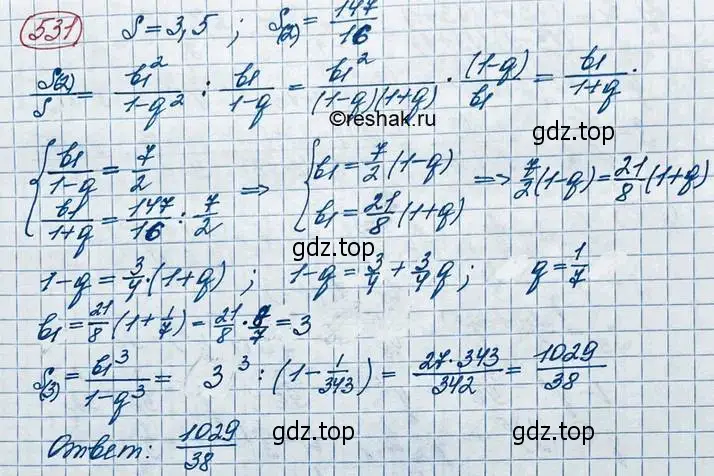 531 S = 3,5 ; S(2) = 147/16
S(2)/S = b1²/(1-q²) : b1/(1-q) = b1²/((1-q)(1+q)) · (1-q)/b1 = b1/(1+q) .
©reshak.ru
gdz.top
{ b1/(1-q) = 7/2 => { b1 = 7/2 (1-q) => 7/2 (1-q) = 21/8 (1+q)
b1/(1+q) = 147/16 : 7/2 b1 = 21/8 (1+q)
gdz.top
gdz.top
1-q = 3/4 · (1+q) ; 1-q = 3/4 + 3/4 q ; q = 1/7
b1 = 21/8 (1 + 1/7) = 21/8 · 8/7 = 3
S(3) = b1³/(1-q³) = 3³ : (1 - 1/343) = 27·343/342 = 1029/38
gdz.top
gdz.top
Ответ: 1029/38
gdz.top
gdz.top